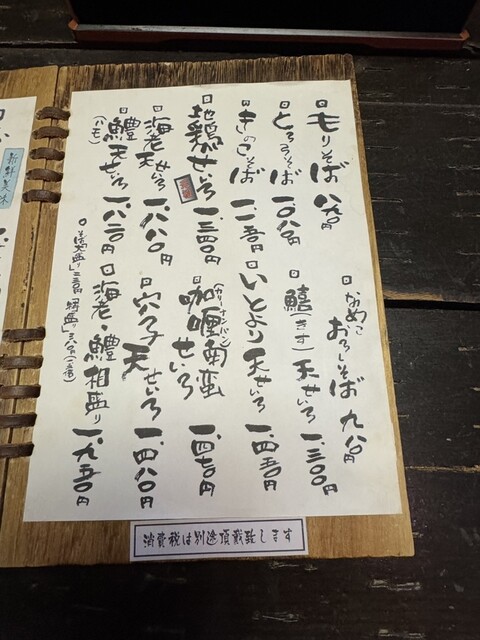 もりそば 八九〇円
とろろそば 一、〇八〇円
きのこそば 一、一五〇円
地鶏せいろ 一、三四〇円
海老天せいろ 一、八八〇円
鱧天せいろ 一、八二〇円
(ハモ)
なめこおろしそば 九八〇円
鱚(きす)天せいろ 一、三〇〇円
いとより天せいろ 一、四五〇円
咖喱南蛮せいろ 一、四七〇円
(カリーナンバン)
穴子天せいろ 一、四八〇円
海老・鱧相盛り 一、九五〇円
そば大盛り
新鮮美味
消費税は別途頂戴致します